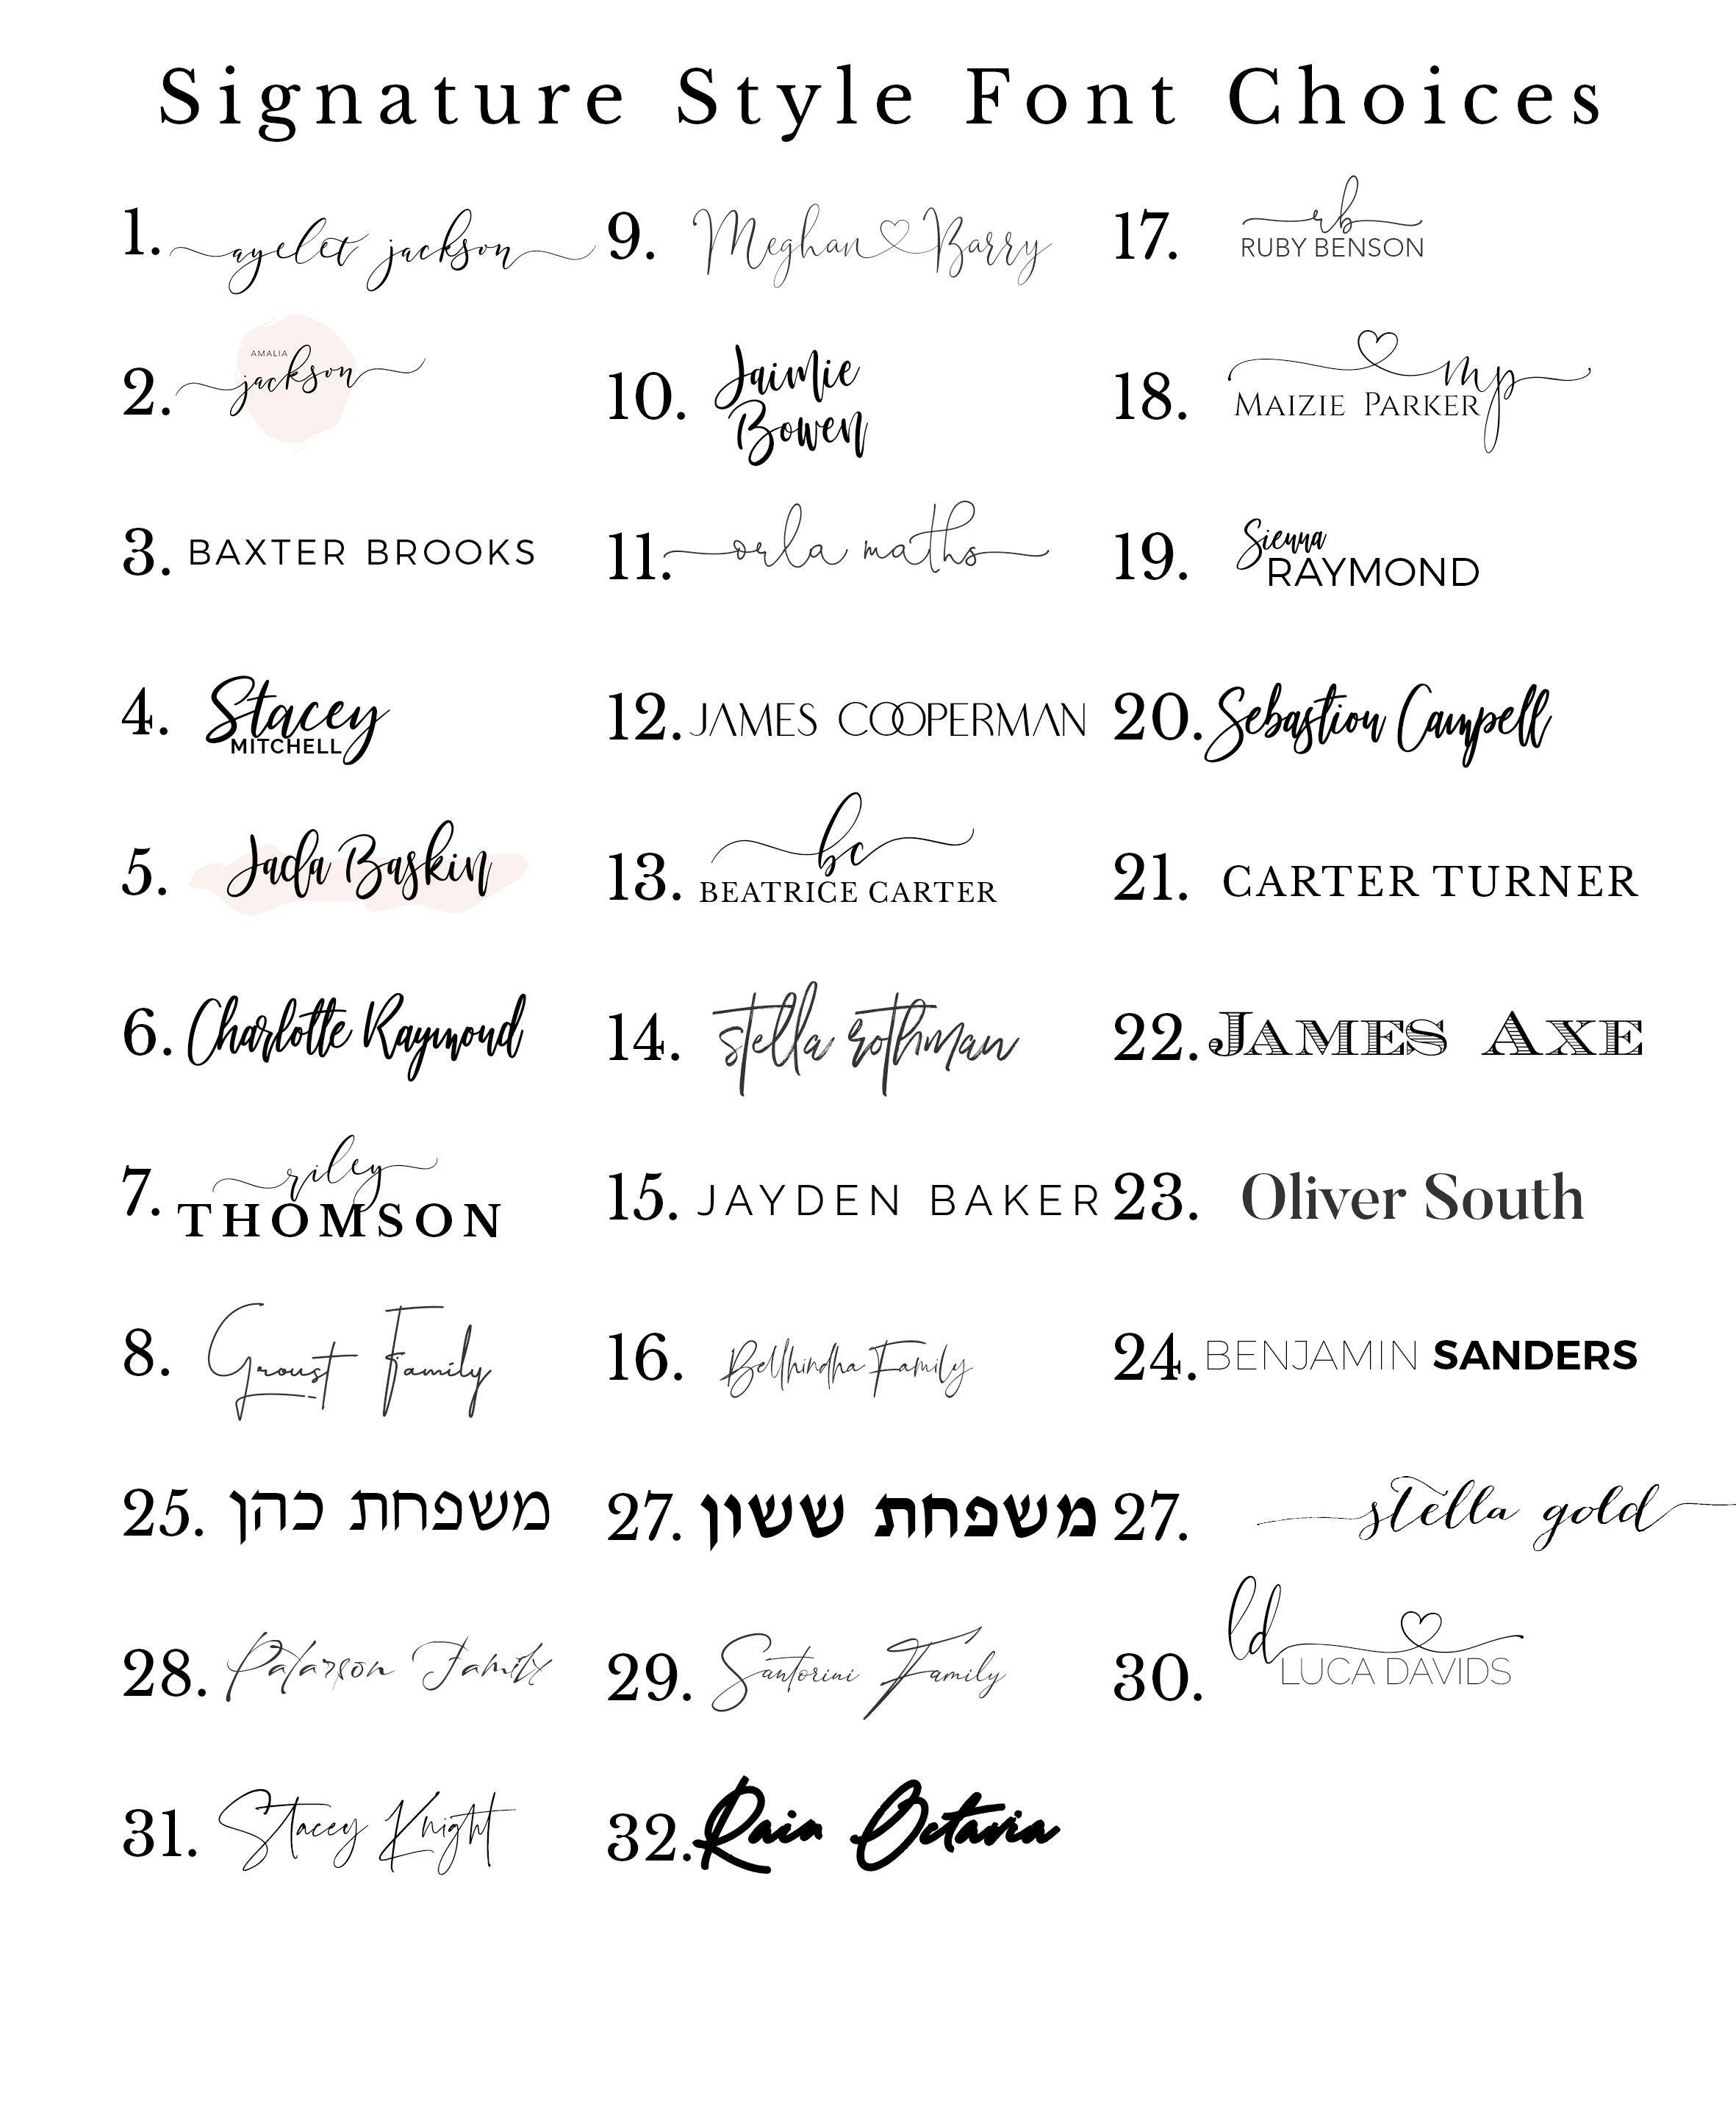 Signature Style Font Choices
1. ayelet jackson
2. AMALIA
jackson
3. BAXTER BROOKS
4. Stacey
MITCHELL
5. Jada Baskin
6. Charlotte Raymond
7. riley
THOMSON
8. Groust Family
9. Meghan Barry
10. Jaimie
Bowen
11. orla maths
12. JAMES COOPERMAN
13. bc
BEATRICE CARTER
14. stella rothman
15. JAYDEN BAKER
16. Bellhindha Family
17. rb
RUBY BENSON
18. mp
MAIZIE PARKER
19. Sienna
RAYMOND
20. Sebastion Campell
21. CARTER TURNER
22. JAMES AXE
23. Oliver South
24. BENJAMIN SANDERS
25. משפחת כהן
27. משפחת ששון
27. stella gold
28. Patarson Family
29. Santorini Family
30. ld
LUCA DAVIDS
31. Stacey Knight
32. Rain Octavia